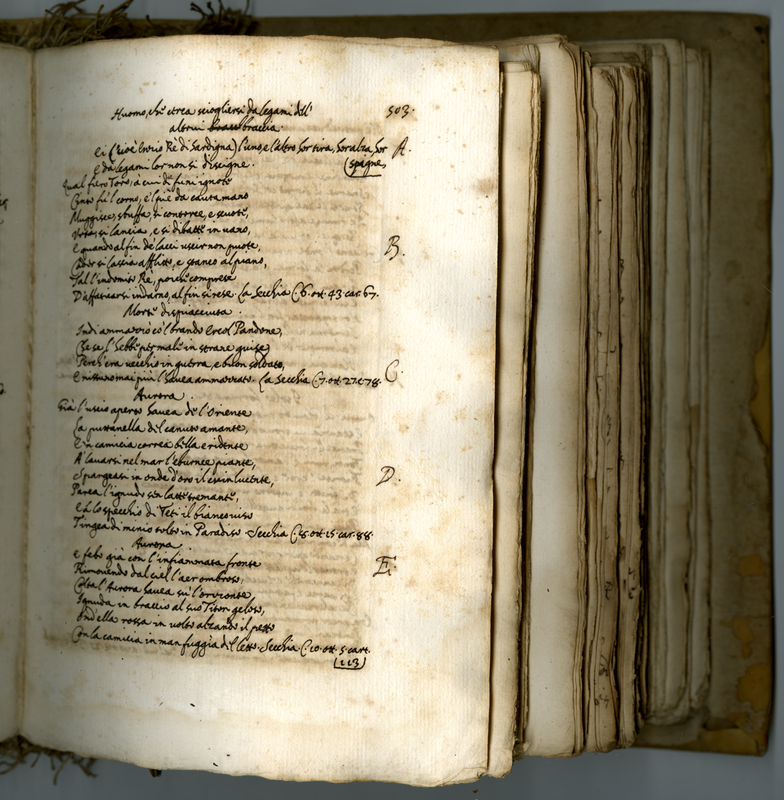 503.
Huomo, che cerca sciogliersi da legami dell'
altrui braccia.
Ei (cioè Enzio Rè di Sardigna) l'uno, e l'altro hor tira, hor alza, hor
(spagne,
A.
E da legami lor non si discigne.
Qual fiero Toro, a cui di funi ignote
Cinto fù 'l corno, e 'l piè da cauta mano
Muggisce, sbuffa, si contorce, e scuote,
Urta, si lancia, e si dibatte in vano,
E quando al fin de' lacci uscir non puote,
B.
Cader si lascia afflitto, e stanco al piano,
Tal l'indomito Rè, poiche comprese
D'affaticarsi indarno, al fin si rese. La Secchia C. 6. ott. 43. car. 67.
Morte dispiacciuta.
Indi ammazzò co 'l brando Ercol Pandone,
Che se l'hebbe per male in strane guise
Perch'era vecchio in guerra, e buon soldato,
E nissuno mai più l'havea ammazzato. La Secchia C. 7. ott. 27. c. 78.
C.
Aurora.
Già l'uscio aperto havea de l'Oriente
La puttanella del canuto amante,
E in camicia correa bella e ridente
A' lavarsi nel mar l'eburnee piante,
Spargeasi in onde d'oro il crin lucente,
D.
Parea l'ignudo sen latte tremante,
E à lo specchio di Teti il bianco viso
Tingea di minio tolto in Paradiso. Secchia C. 8. ott. 15. car. 88.
Aurora.
E febo già con l'infiammata fronte
E.
Rimovendo dal ciel l'aer ombroso,
Colta l'Aurora havea sù l'orizonte,
Ignuda in braccio al suo Titon geloso,
Ond'ella rossa in volto alzando il petto
Con la camicia in man fuggìa del letto. Secchia C. 10. ott. 5. cart.
(113)